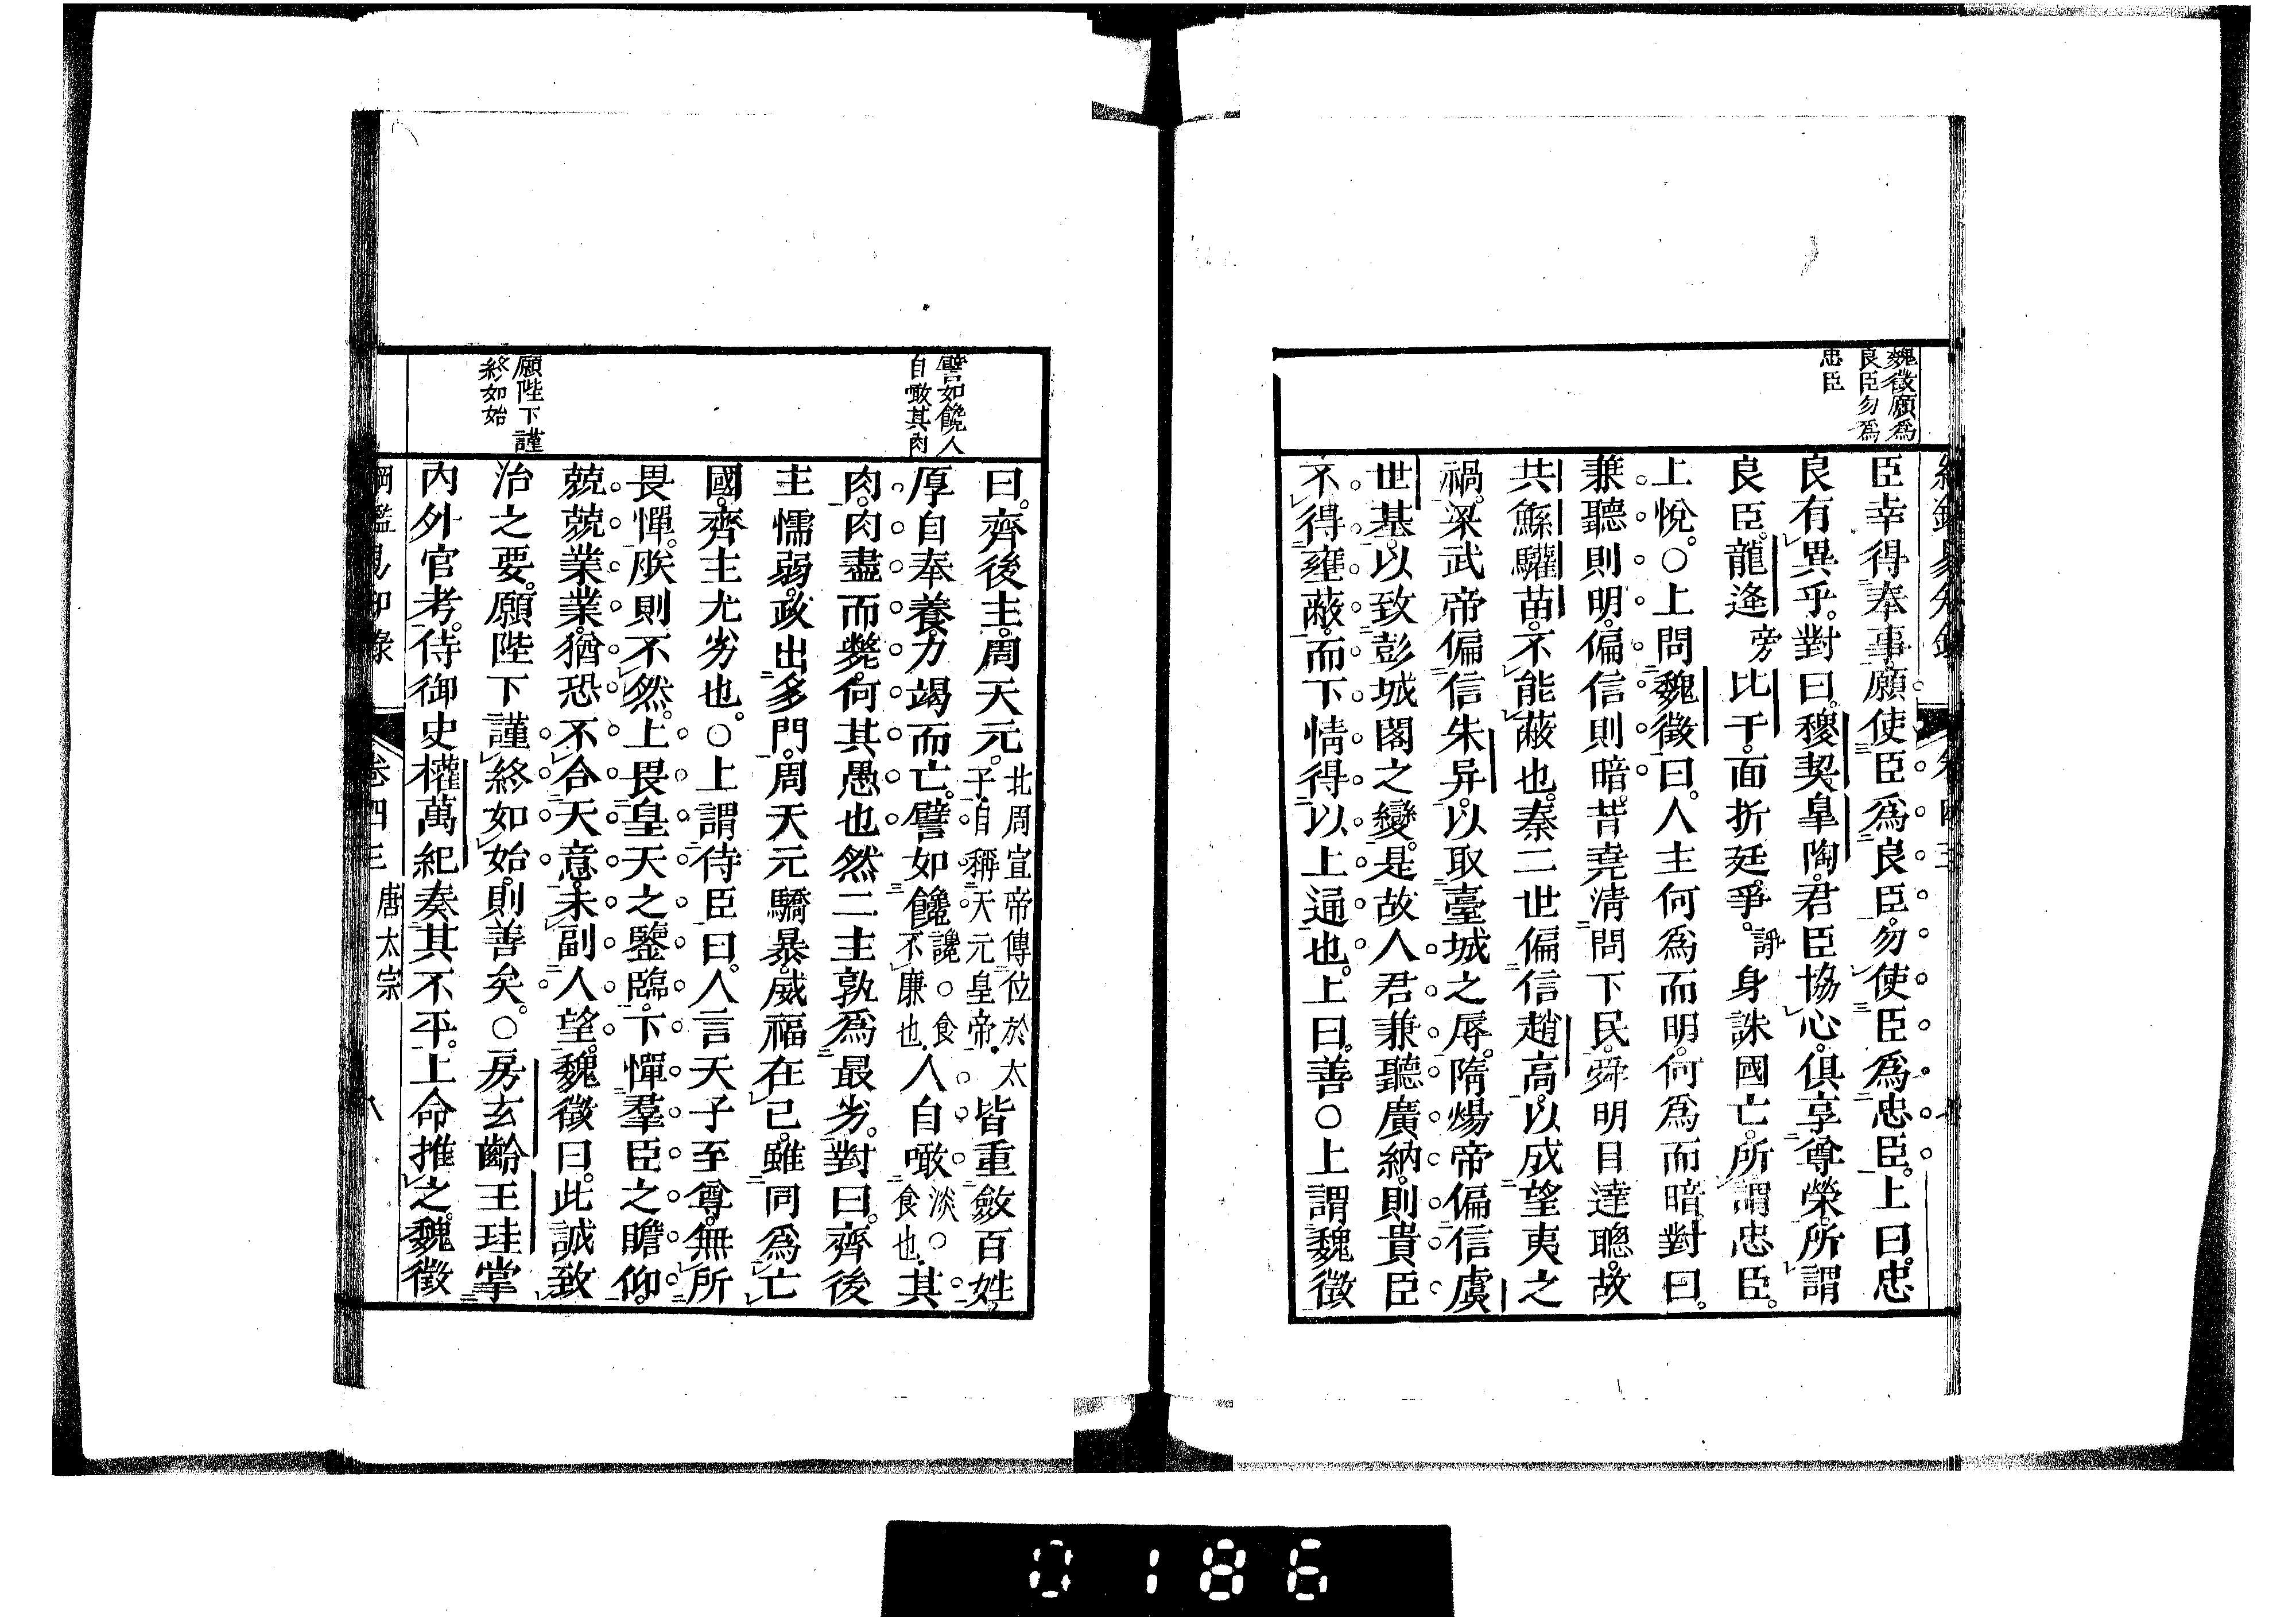 魏徵願爲
良臣勿爲
忠臣
臣幸得奉事。願使臣爲良臣。勿使臣爲忠臣。上曰。忠
良有異乎。對曰。稷契皐陶。君臣協心。俱享尊榮。所謂
良臣。龍逄旁比干。面折廷爭。諍身誅國亡。所謂忠臣。
上悅。○上問魏徵曰。人主何爲而明。何爲而暗。對曰。
兼聽則明。偏信則暗。昔堯清問下民。舜明目達聰。故
共鯀驩苗。不能蔽也。秦二世偏信趙高。以成望夷之
禍。梁武帝偏信朱异。以取臺城之辱。隋煬帝偏信虞
世基。以致彭城閣之變。是故人君兼聽廣納。則貴臣
不得壅蔽。而下情得以上通也。上曰。善○上謂魏徵
譬如饞人
自噉其肉
願陛下謹
終如始
曰。齊後主。周天元。北周宣帝傳位於太子。自稱天元皇帝。皆重斂百姓。
厚自奉養。力竭而亡。譬如饞讒○食不廉也。人自噉淡○食也。其
肉。肉盡而斃。何其愚也然二主孰爲最劣。對曰。齊後
主懦弱。政出多門。周天元驕暴。威福在已。雖同爲亡
國。齊主尤劣也。○上謂侍臣曰。人言天子至尊。無所
畏憚。朕則不然。上畏皇天之鑒臨。下憚羣臣之瞻仰。
兢兢業業。猶恐不合天意。未副人望。魏徵曰。此誠致
治之要。願陛下謹終如始。則善矣。○房玄齡王珪掌
內外官考。侍御史權萬紀奏其不平。上命推之。魏徵
綱鑑易知錄 卷四三 唐太宗 八